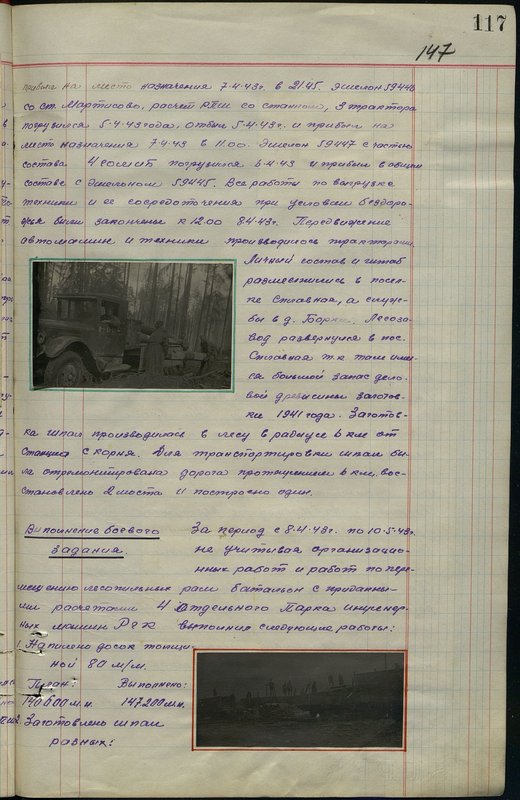 117
147
прибыл на место назначения 7-4-43г. в 21.45. Эшелон 59446
со ст. Мартисово, расчет РПШ со станком, 3 трактора
погрузился 5-4-43года. Отбыл 5-4-43г. и прибыл на
место назначения 7-4-43 в 11.00. Эшелон 59447 с частью
состава 4 погрузился 6-4-43 и прибыл в общем
составе с эшелоном 59445. Все работы по выгрузке
техники и ее сосредоточения при условии бездоро-
жья были закончены к 12.00 8-4-43г. Передвижение
автомашин и техники производилось тракторами.
Личный состав и штаб
разместились в посел-
ке Сплавная, а служ-
бы в д. Борки. Лесоза-
вод развернулся в пос.
Сплавная т.к там имел-
ся большой запас дело-
вой древисины заготов-
ки 1941 года. Заготов-
ка шпал производилась в лесу в радиусе 6 км от
станции с корня. Для транспортировки шпал бы-
ла отремонтирована дорога протяжением 6 км. вос-
становлено 2 моста и построено один.
Выполнение боевого
задания.
За период с 8-4-43г. по 10-5-43г.
не учитывая организацио-
нных работ и работ по пере-
мещению лесопильных рам батальон с приданны-
ми расчетами 4 Отдельного Парка инженер-
ных машин РГК выполнил следующие работы:
1. Напилено досок толщи-
ной 80 м/м.
План: Выполнено:
140600 м.п. 147200 м.п.
2. Заготовлено шпал
разных: